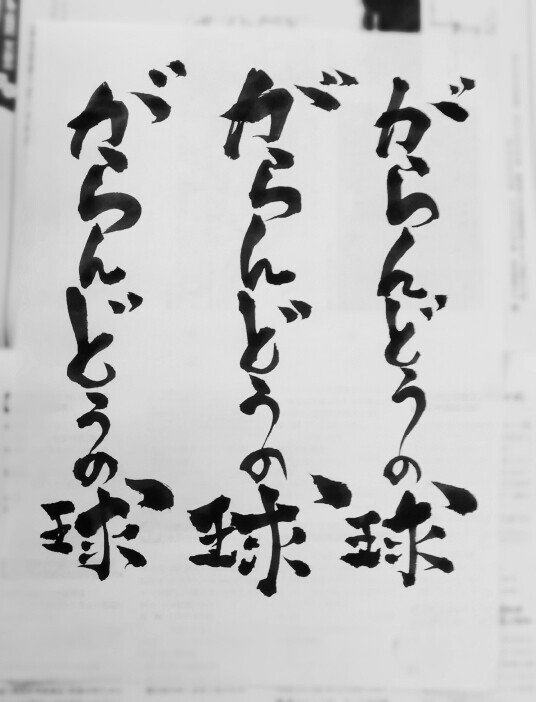 がらんどうの球
がらんどうの球
がらんどうの球